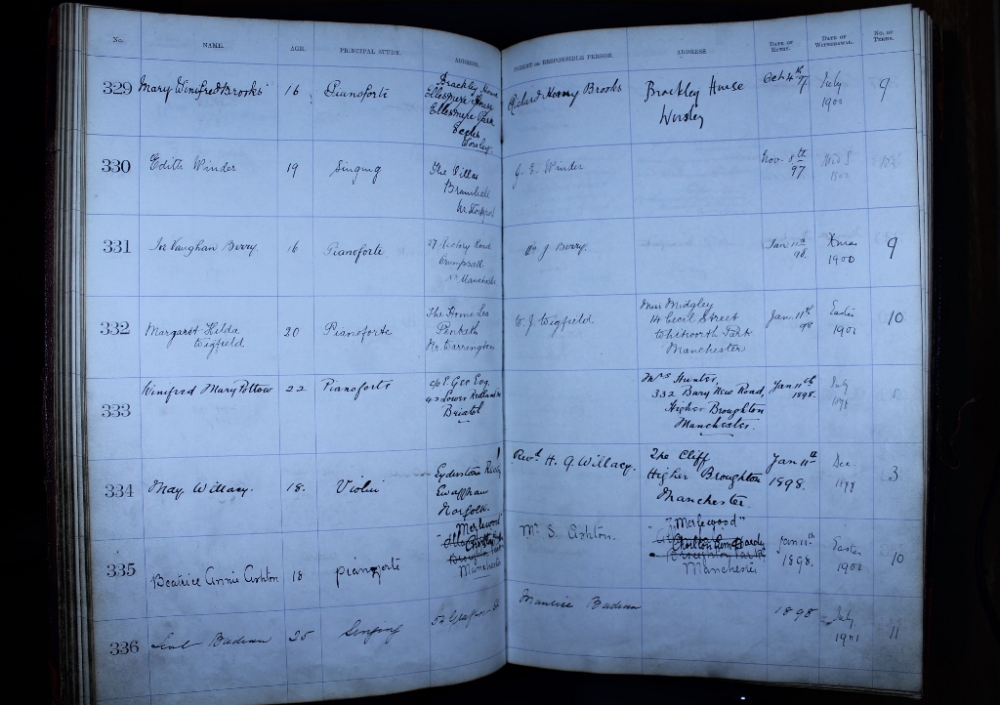 No. NAME. AGE. PRINCIPAL STUDY. ADDRESS. PARENT OR RESPONSIBLE PERSON. ADDRESS DATE OF ENTRY. DATE OF WITHDRAWAL. NO. OF TERMS.
329 Mary Winifred Brooks 16 Pianoforte
Brackley House
Ellesmere House
Ellesmere Park
Eccles
Worsley.
Richard Brooks
Brackley House
Worsley
Oct 4th 97
July
1900
9
330 Edith Winder 19 Singing
The Villas
Bramhall
Nr. Stockport
J. E. Winder
Nov. 8th
97
331 Vaughan Berry. 16 Pianoforte
27 Victory Road
Crumpsall
Nr Manchester
J. Berry.
Jan 11th
98.
Xmas
1900
9
332 Margaret Hilda
Wigfield
20 Pianoforte
The Lea
Penketh
Nr. Warrington
J. Wigfield.
Miss Midgley
14 Cecil Street
Whitworth Park
Manchester
Jan. 11th
98
Easter
1901
10
333 Winifred Mary Pottow 22 Pianoforte
c/o P. Gee Esq.
42 Lower Redland Rd
Bristol
Mrs Hunter,
332 Bury New Road,
Higher Broughton
Manchester.
Jan 11th
1898.
July
1898
334 May Willacy. 18. Violin
Rectory
Swaffham
Norfolk.
Revd. H. A. Willacy.
The Cliff
Higher Broughton
Manchester.
Jan 11th
1898.
Dec.
1898
3
335 Beatrice Annie Ashton 18 pianoforte
"Maplewood"
Manchester
Mr S. Ashton.
"Maplewood"
Chorlton cum Hardy
Broughton Park
Manchester
Jan 11th
1898.
Easter
1901
10
336 Badian 25 Singing
52
Maurice Badian
1898
July
1901
11